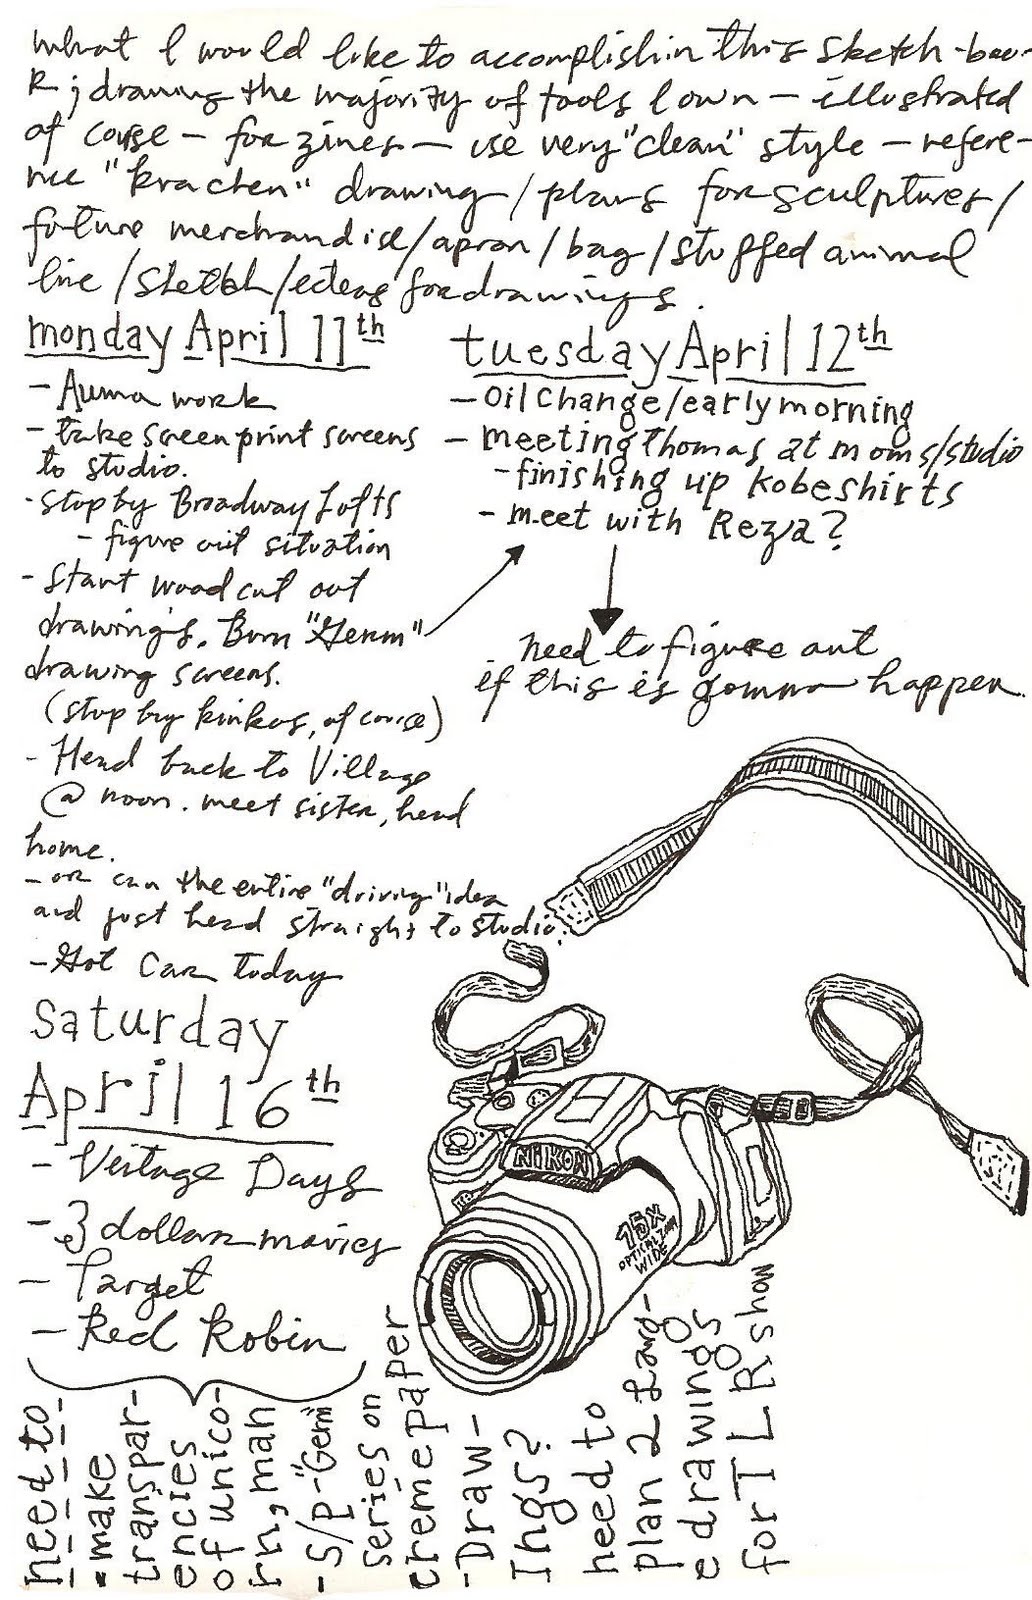 what I would like to accomplish in this sketch-boo-
k; drawing the majority of tools I own — illustrated
of corse — for zines — use very "clean" style — refere-
nce "krachen" drawing / plans for sculptures /
future merchandise / apron / bag / stuffed animal
line / sketch / ideas for drawings.
monday April 11th
- Auma work
- take screen print screens
to studio.
- stop by Broadway Lofts
- figure out situation
- start wood cut out
drawings. Burn "Germ"
drawing screens.
(stop by kinkos, of corse)
- Head back to Village
@ noon. meet sister, head
home.
- or can the entire "driving" idea
and just head straight to studio.
- Got Car today
tuesday April 12th
- Oil Change/early morning
- meeting Thomas at moms/studio
- finishing up kobe shirts
- meet with Reza?
need to figure out
if this is gonna happen.
Saturday
April 16th
- Vintage Days
- 3 dollar movies
- Target
- Red Robin
NiKON
15X
OPTICAL ZOOM
WIDE
need to-
• make
transpar-
encies
of unico-
rn, man
- S/P - "Germ"
series on
creme paper
- Draw-
Ings?
need to
plan 2 larg-
e drawings
for T L R show